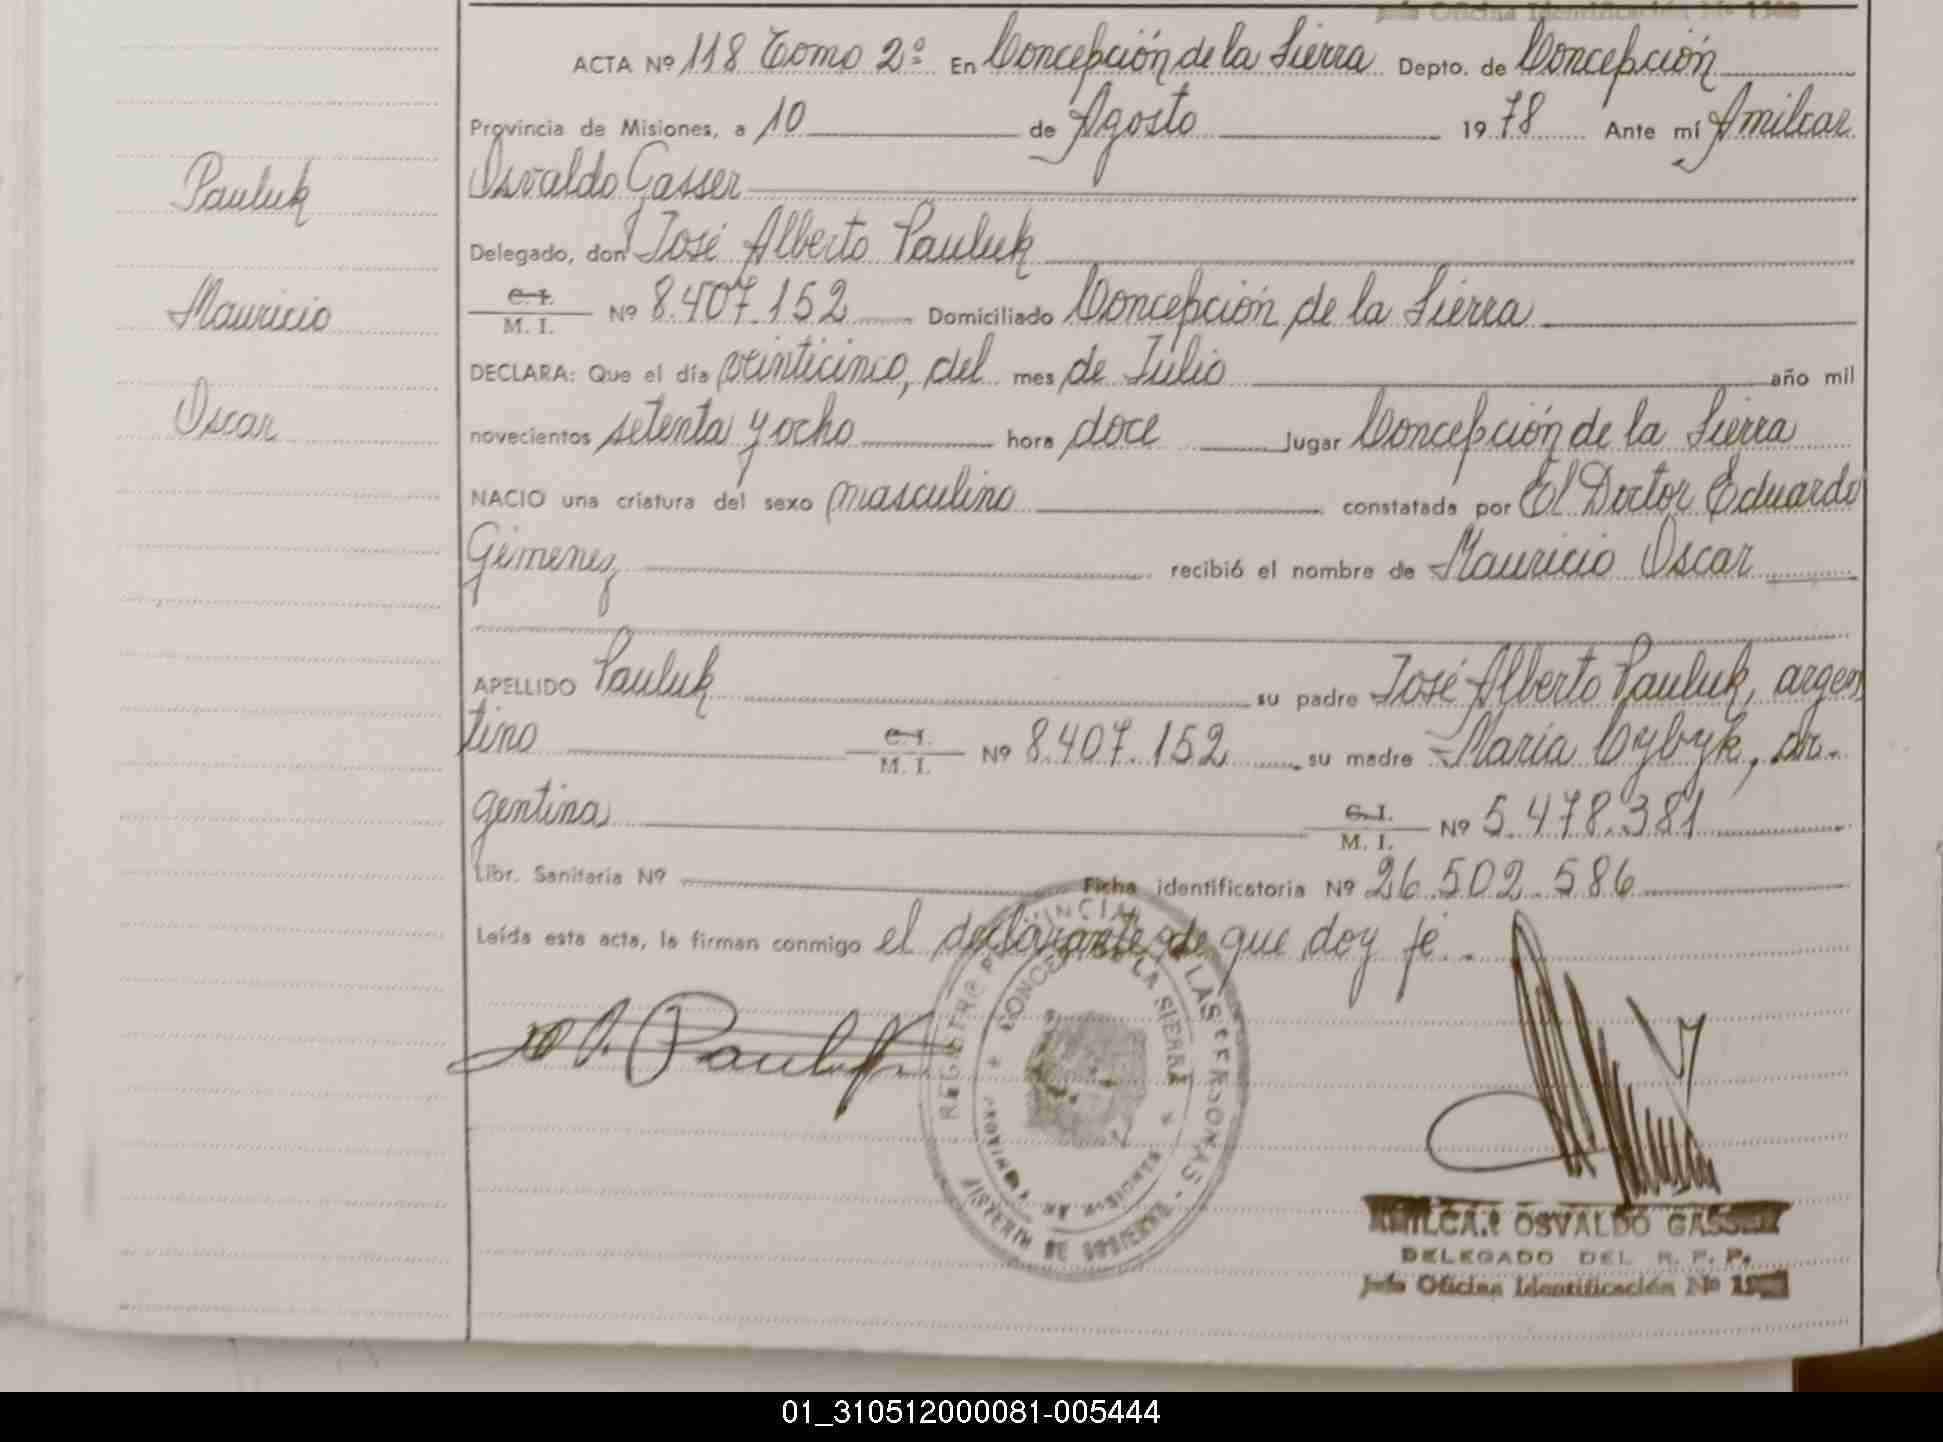 Jefe Oficina Identificación Nº
ACTA Nº 118 Tomo 2º En Concepción de la Sierra Depto. de Concepción
Provincia de Misiones, a 10 de Agosto 1978 Ante mí Amilcar
Osvaldo Gasser
Delegado, don José Alberto Pauluk
C. I.
M. I. Nº 8.407.152 Domiciliado Concepción de la Sierra
DECLARA: Que el día veinticinco, del mes de Julio año mil
novecientos setenta y ocho hora doce lugar Concepción de la Sierra
NACIO una criatura del sexo masculino constatada por El Doctor Eduardo
Gimenez recibió el nombre de Mauricio Oscar
APELLIDO Pauluk su padre José Alberto Pauluk, argen
tino C. I.
M. I. Nº 8.407.152 su madre María Cybyk, ar-
gentina C. I.
M. I. Nº 5.478.381
Libr. Sanitaria Nº Ficha identificatoria Nº 26.502.586
Leída esta acta, la firman conmigo el declarante de que doy fé.
Pauluk
Mauricio
Oscar
Pauluk
REGISTRO PROVINCIAL DE LAS PERSONAS
CONCEPCION DE LA SIERRA
PROVINCIA DE MISIONES
MINISTERIO DE GOBIERNO
AMILCAR OSVALDO GASSER
DELEGADO DEL R. P. P.
Jefe Oficina Identificación Nº
01_310512000081-005444